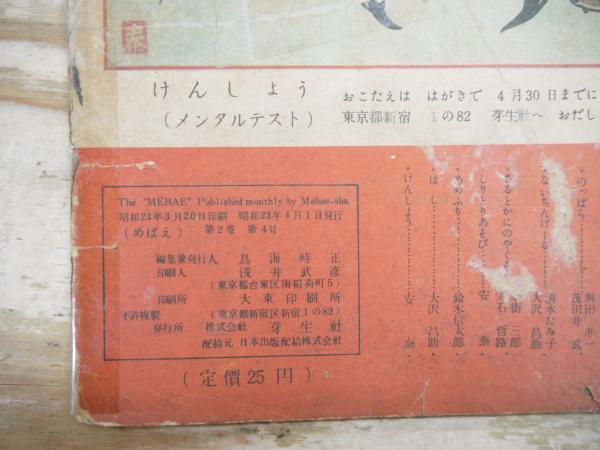 泰
けんしょう
(メンタルテスト)
おこたえは はがきで 4月30日までに
東京都新宿 1の82 芽生社へ おだし
The "MEBAE" Published monthly by Mebae-sha.
昭和23年3月20日印刷 昭和23年4月1日発行
(めばえ) 第2巻 第4号
編集兼発行人 鳥海時正
印刷人 浅井武彦
(東京都台東区南稲荷町5)
印刷所 大東印刷所
不許複製 (東京都新宿区新宿1の82)
発行所 株式会社 芽生社
配給元 日本出版配給株式会社
(定價25円)
・のっぱら
茂田井 武
ないちんげーる 清水たみ子
大沢 昌助
さるとかにのやくそく 三郎
石 哲路
・しりとりあそび 安 泰
・あめふり 鈴木信太郎
・はし 大沢 昌助
・けんしょう 安 泰